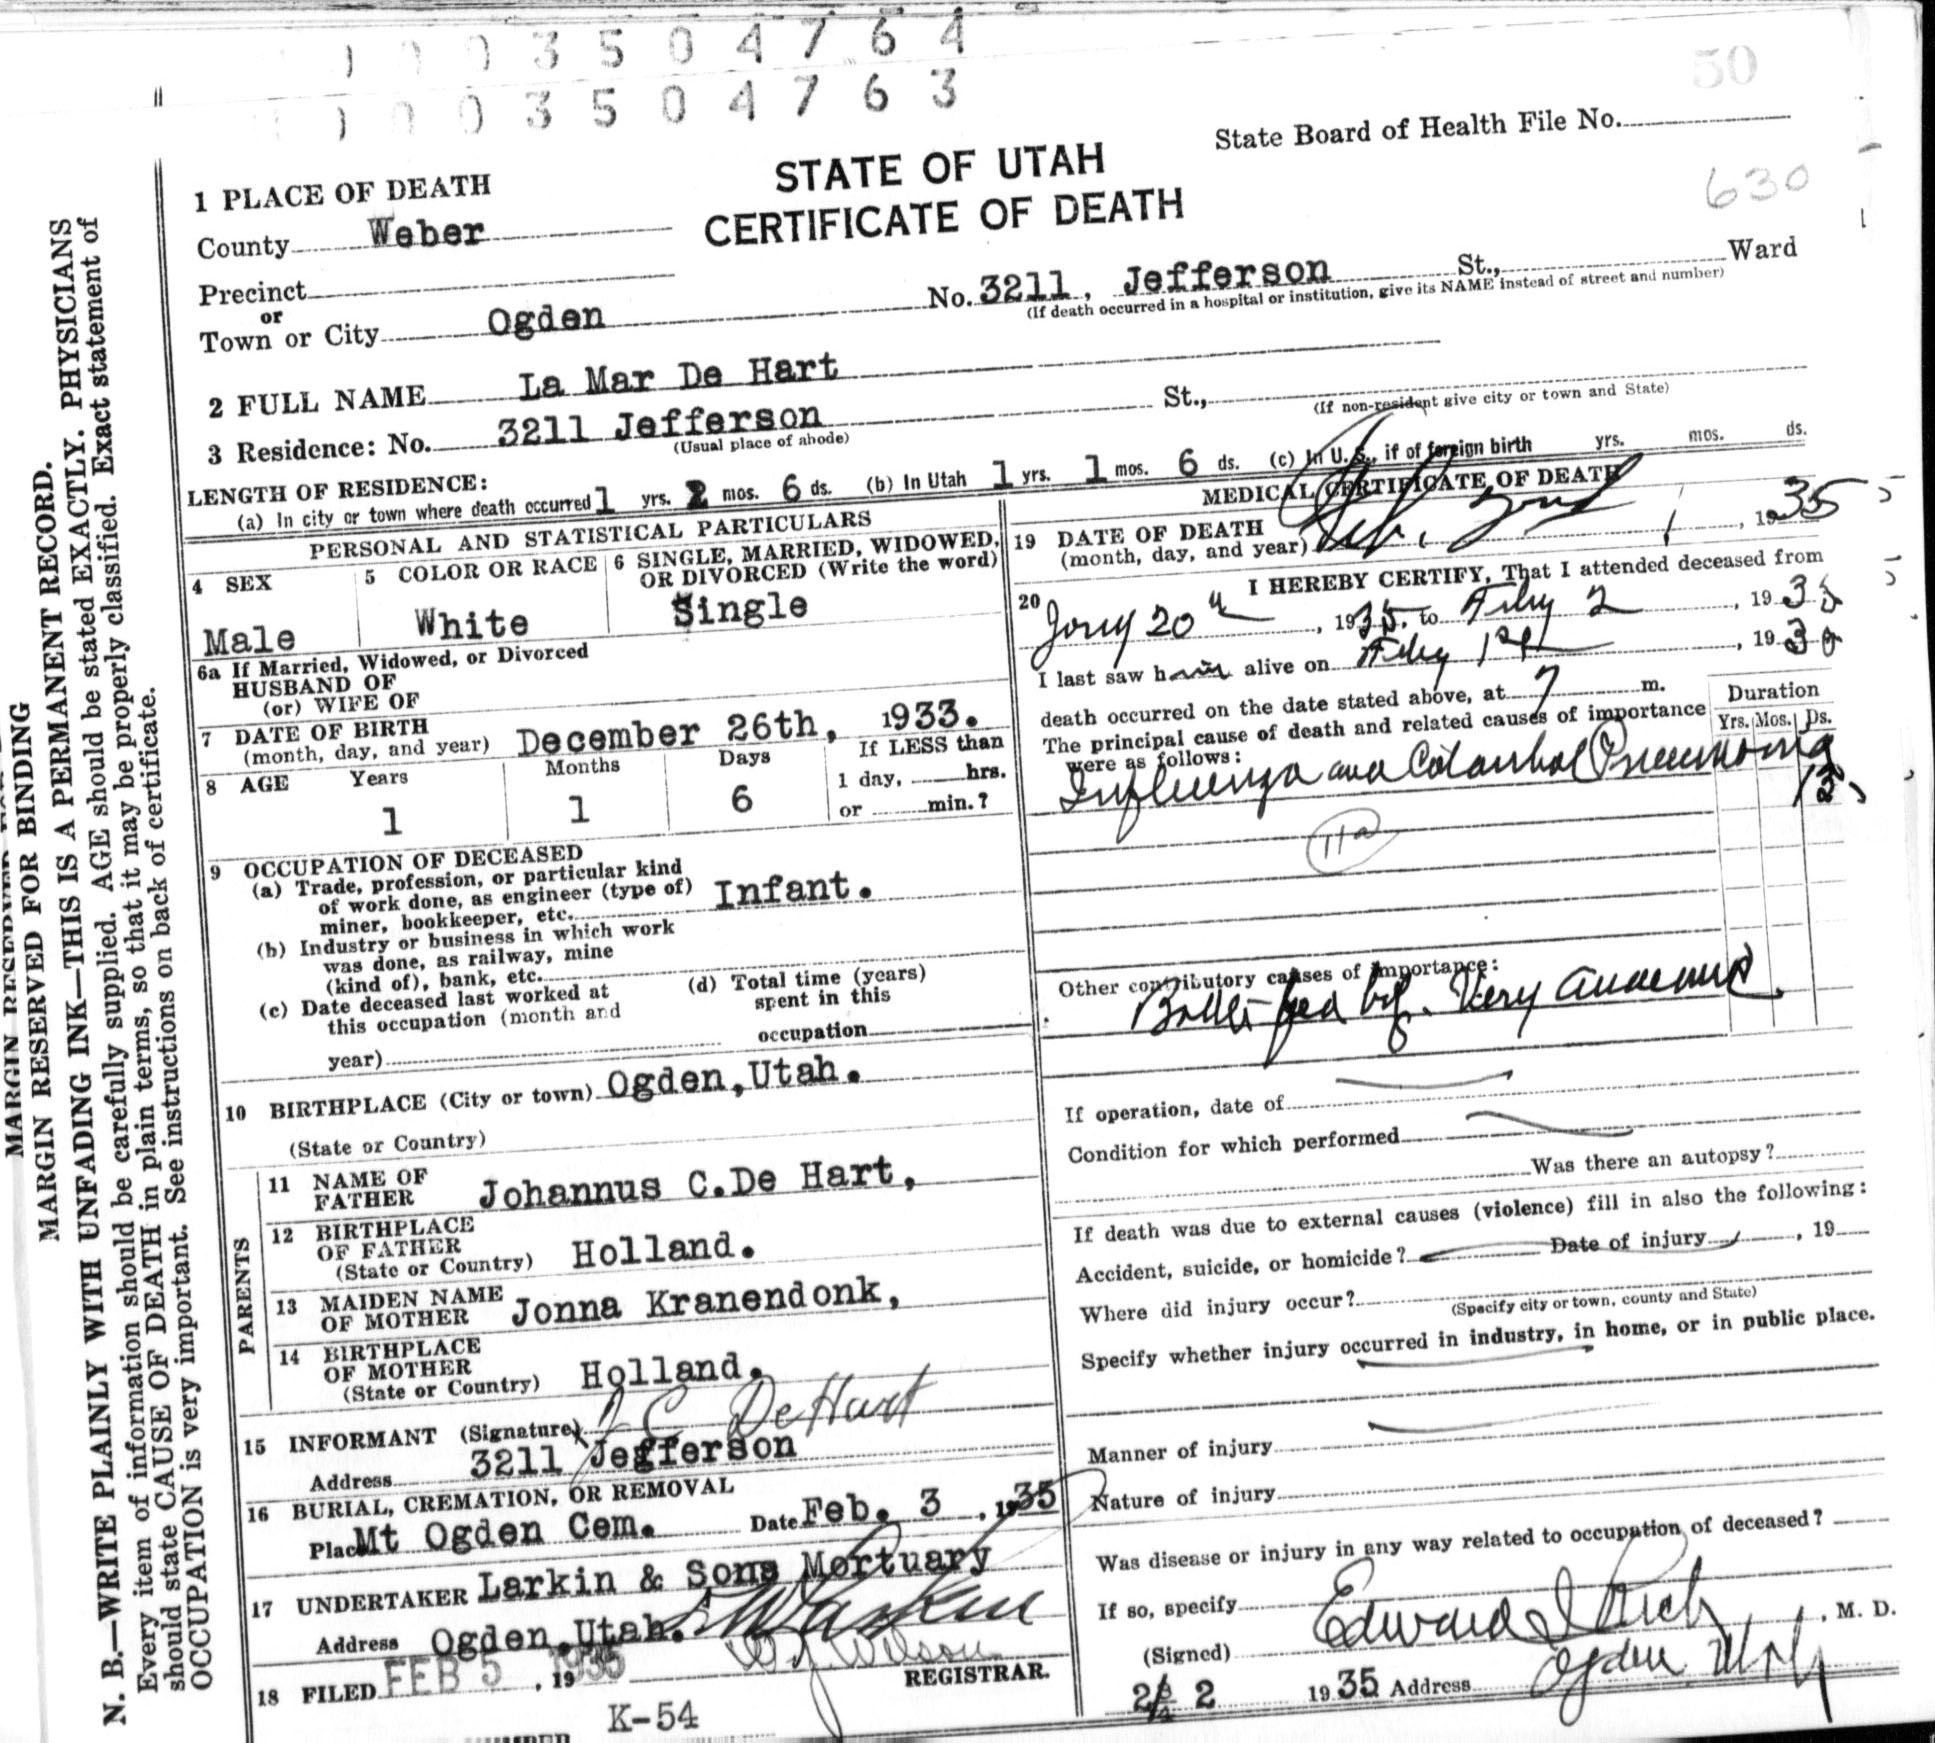 1 0 0 3 5 0 4 7 6 4
1 0 0 3 5 0 4 7 6 3
50
State Board of Health File No.
630
STATE OF UTAH
CERTIFICATE OF DEATH
1 PLACE OF DEATH
County Weber
Precinct
or
Town or City Ogden No. 3211, Jefferson St., Ward
(If death occurred in a hospital or institution, give its NAME instead of street and number)
2 FULL NAME La Mar De Hart
3 Residence: No. 3211 Jefferson St.,
(Usual place of abode) (If non-resident give city or town and State)
LENGTH OF RESIDENCE:
(a) In city or town where death occurred 1 yrs. 2 mos. 6 ds. (b) In Utah 1 yrs. 1 mos. 6 ds. (c) In U. S., if of foreign birth yrs. mos. ds.
PERSONAL AND STATISTICAL PARTICULARS
4 SEX
Male
5 COLOR OR RACE
White
6 SINGLE, MARRIED, WIDOWED,
OR DIVORCED (Write the word)
Single
6a If Married, Widowed, or Divorced
HUSBAND OF
(or) WIFE OF
7 DATE OF BIRTH
(month, day, and year) December 26th, 1933.
8 AGE Years Months Days If LESS than
1 1 6 1 day, hrs.
or min.?
9 OCCUPATION OF DECEASED
(a) Trade, profession, or particular kind
of work done, as engineer (type of)
miner, bookkeeper, etc. Infant.
(b) Industry or business in which work
was done, as railway, mine
(kind of), bank, etc.
(c) Date deceased last worked at
this occupation (month and
year)
(d) Total time (years)
spent in this
occupation
10 BIRTHPLACE (City or town) Ogden, Utah.
(State or Country)
PARENTS
11 NAME OF
FATHER Johannus C. De Hart,
12 BIRTHPLACE
OF FATHER
(State or Country) Holland.
13 MAIDEN NAME
OF MOTHER Jonna Kranendonk,
14 BIRTHPLACE
OF MOTHER
(State or Country) Holland.
15 INFORMANT (Signature) J C DeHart
Address 3211 Jefferson
16 BURIAL, CREMATION, OR REMOVAL
Place Mt Ogden Cem. Date Feb. 3, 1935
17 UNDERTAKER Larkin & Sons Mortuary
Address Ogden, Utah.
18 FILED FEB 5, 1935 Wilson REGISTRAR.
K-54
MEDICAL CERTIFICATE OF DEATH
19 DATE OF DEATH
(month, day, and year) Feb. 2nd, 1935
20 I HEREBY CERTIFY, That I attended deceased from
20th, 1935, to Feby 2, 1935
I last saw him alive on Feby 1st, 193
death occurred on the date stated above, at 7 m.
The principal cause of death and related causes of importance
were as follows:
Duration
Yrs. Mos. Ds.
Influenza and Catarrhal Pneumonia
11a
Other contributory causes of importance:
Bottle-fed Very
If operation, date of
Condition for which performed
Was there an autopsy?
If death was due to external causes (violence) fill in also the following:
Accident, suicide, or homicide? Date of injury , 19
Where did injury occur?
(Specify city or town, county and State)
Specify whether injury occurred in industry, in home, or in public place.
Manner of injury
Nature of injury
Was disease or injury in any way related to occupation of deceased?
If so, specify
(Signed) Edward I Rich, M. D.
2 1935 Address Ogden Utah
MARGIN RESERVED FOR BINDING
N. B.—WRITE PLAINLY WITH UNFADING INK—THIS IS A PERMANENT RECORD.
Every item of information should be carefully supplied. AGE should be stated EXACTLY. PHYSICIANS
should state CAUSE OF DEATH in plain terms, so that it may be properly classified. Exact statement of
OCCUPATION is very important. See instructions on back of certificate.